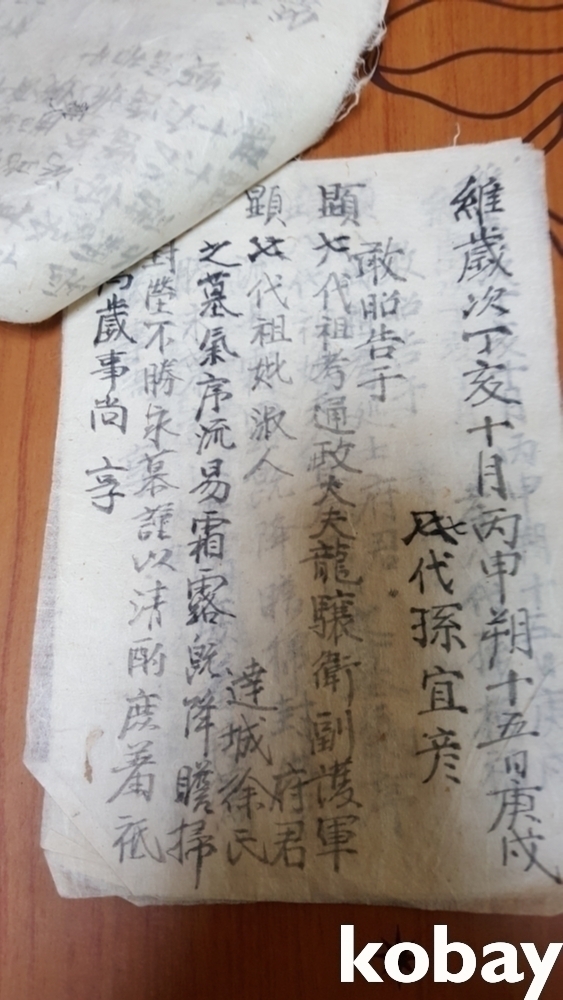 維歲次丁亥十月丙申朔十五日庚戌
七代孫宜彦
敢昭告于
顯七代祖考通政大夫龍驤衛副護軍府君
顯七代祖妣淑人達城徐氏
之墓氣序流易霜露旣降瞻掃
封塋不勝永慕謹以淸酌庶羞祗
歲事尙 享
kobay